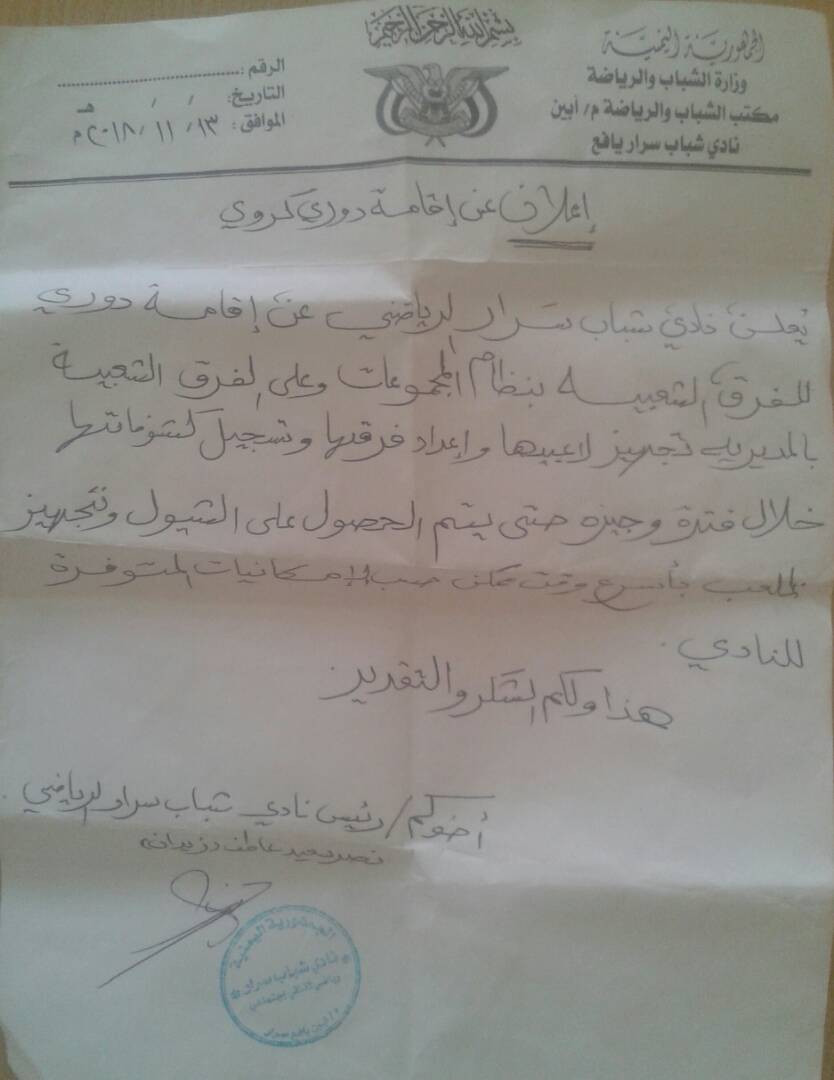 بسم الله الرحمن الرحيم
الجمهورية اليمنية
وزارة الشباب والرياضة
مكتب الشباب والرياضة م/أبين
نادي شباب سرار يافع
الرقم :
التاريخ: / / هـ
الموافق: ١٣/ ١١ /٢٠١٨م
إعلان عن إقامة دوري كروي
يعلن نادي شباب سرار الرياضي عن إقامة دوري
للفرق الشعبيه بنظام المجموعات وعلى الفرق الشعبية
بالمديريه تجهيز لاعبيها وإعداد فرقها وتسجيل كشوفاتها
خلال فترة وجيزه حتى يتم الحصول على التمويل وتجهيز
الملعب بأسرع وقت ممكن حسب الإمكانيات المتوفرة
للنادي.
هذا ولكم الشكر والتقدير
أخوكم/ رئيس نادي شباب سرار الرياضي.
نصر سعيد عاطف
الجمهورية اليمنية
نادي شباب سرار
رياضي ثقافي إجتماعي